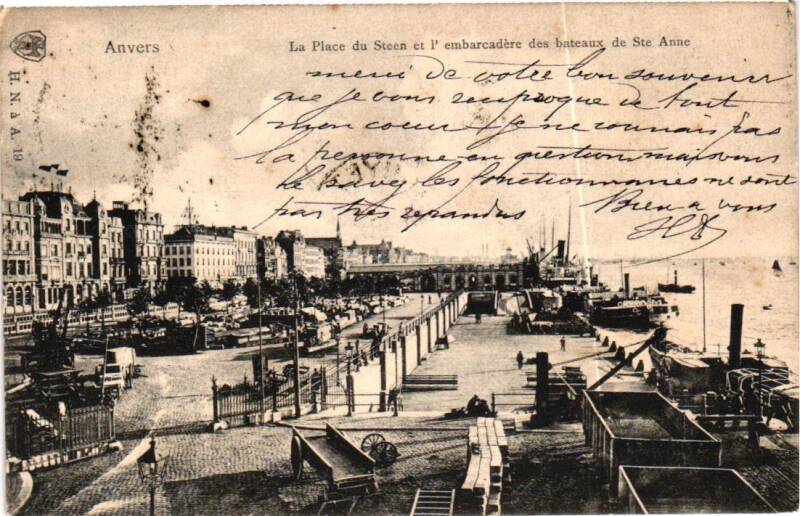 Anvers
La Place du Steen et l' embarcadère des bateaux de Ste Anne
H. N. à A. 19
merci de votre bon souvenir
que je vous réciproque de tout
mon coeur je ne connais pas
la personne en question mais vous
le savez les fonctionnaires ne sont
pas très répandus Bien à vous